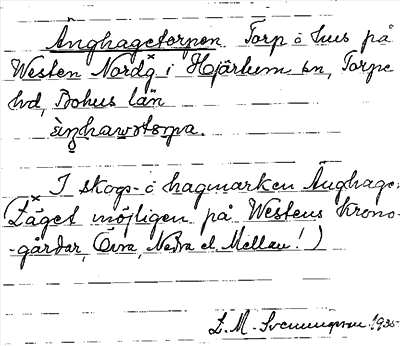 Änghagetorpen Torp o hus på
Westen Nordg i Hjärtum sn, Torpe
hd, Bohus län
I skogs- o hagmarken Änghage.
(Läget möjligen på Westens krono-
-gårdar, Övra, Nedra el. Mellan!)
L. M. Svenungsson 1935